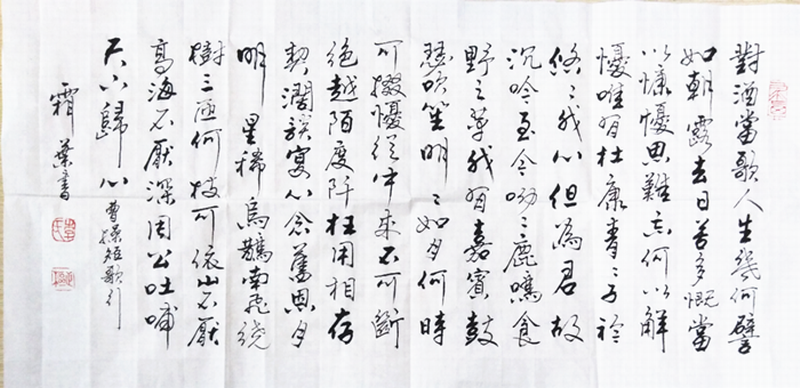 對酒當歌人生幾何譬
如朝露去日苦多慨當
以慷憂思難忘何以解
憂唯有杜康青〻子衿
悠〻我心但為君故
沉吟至今呦〻鹿鳴食
野之苹我有嘉賓鼓
瑟吹笙明〻如月何時
可掇憂從中來不可斷
絕越陌度阡枉用相存
契闊談宴心念舊恩月
明星稀烏鵲南飛繞
樹三匝何枝可依山不厭
高海不厭深周公吐哺
天下歸心 曹操短歌行
霜葉書